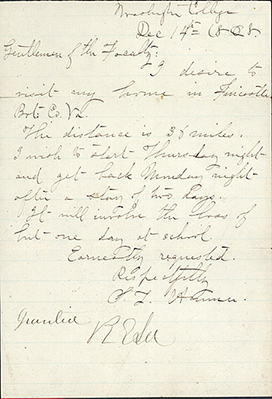 Washington College
Dec 14th 1868
Gentlemen of the Faculty:
I desire to
visit my home in Fincastle
Bot. Co. Va.
The distance is 38 miles.
I wish to start Thursday night
and get back Monday night
after a stay of two days.
It will involve the loss of
but one day at school.
Earnestly requested.
Respectfully
Granted
R E Lee